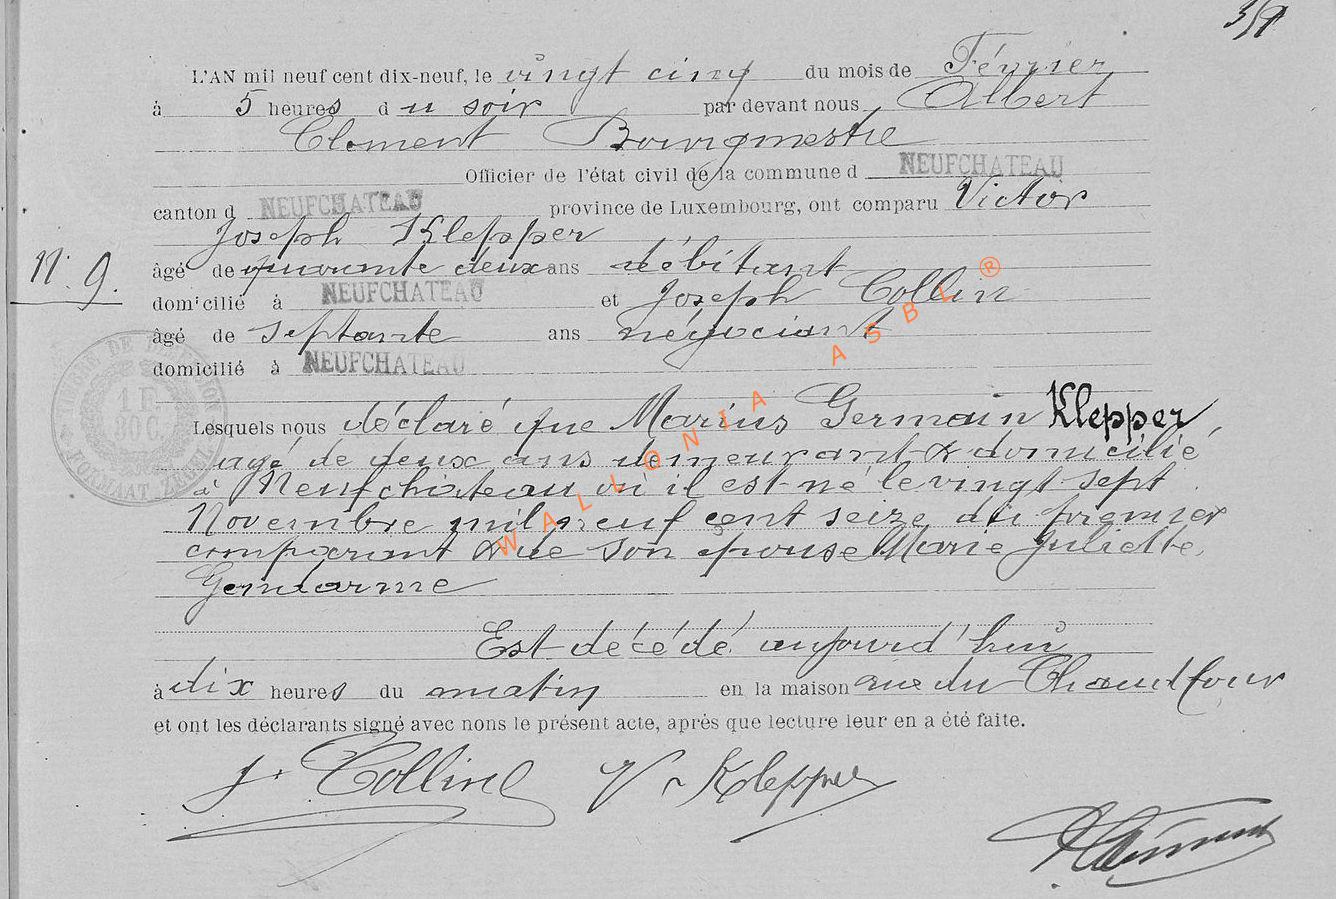 L'AN mil neuf cent dix-neuf, le vingt cinq du mois de Février
à 5 heures du soir par devant nous Albert
Clement Bourgmestre
Officier de l'état civil de la commune d NEUFCHATEAU
canton d NEUFCHATEAU province de Luxembourg, ont comparu Victor
Joseph Klepper
N° 9.
âgé de quarante deux ans débitant
domicilié à NEUFCHATEAU et Joseph Collin
âgé de septante ans négociant
domicilié à NEUFCHATEAU
1 F. 30 C.
Lesquels nous déclaré que Marius Germain Klepper,
agé de deux ans demeurant & domicilié
à Neufchâteau où il est né le vingt sept
Novembre mil neuf cent seize du premier
comparant & de son épouse Marie Juliette
Gendarme
Est décédé aujourd'hui
à dix heures du matin en la maison rue du Chaud four
et ont les déclarants signé avec nous le présent acte, après que lecture leur en a été faite.
J. Collin V Klepper
WALLONIA ASBL ®